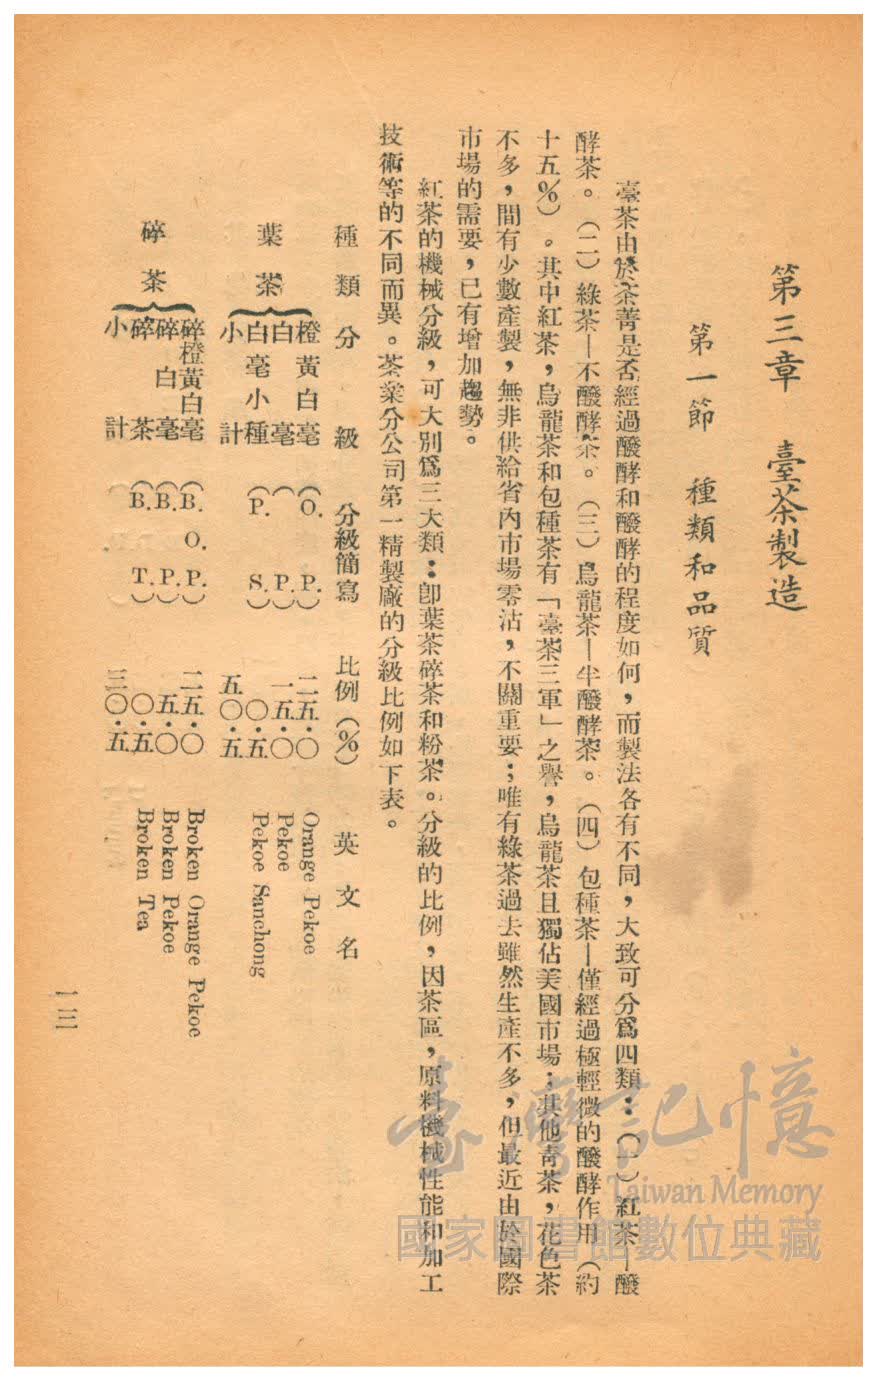 第三章　臺茶製造
第一節　種類和品質
臺茶由於茶菁是否經過醱酵和醱酵的程度如何，而製法各有不同，大致可分爲四類：（一）紅茶—醱
酵茶。（二）綠茶—不醱酵茶。（三）烏龍茶—半醱酵茶。（四）包種茶—僅經過極輕微的醱酵作用（約
十五％）。其中紅茶，烏龍茶和包種茶有「臺茶三軍」之譽，烏龍茶且獨佔美國市場；其他青茶，花色茶
不多，間有少數產製，無非供給省內市場零沽，不關重要；唯有綠茶過去雖然生產不多，但最近由於國際
市場的需要，已有增加趨勢。
紅茶的機械分級，可大別爲三大類：卽葉茶碎茶和粉茶。分級的比例，因茶區，原料機械性能和加工
技術等的不同而異。茶業分公司第一精製廠的分級比例如下表。
種類　分級　分級簡寫　比例（％）　英文名
葉茶
橙黃白毫　（O. P.）　二五·〇　Orange Pekoe
白毫　（P.）　一五·〇　Pekoe
白毫小種　（P. S.）　〇·五　Pekoe Sanchong
小計　五〇·五
碎茶
碎橙黃白毫　（B. O. P.）　二五·〇　Broken Orange Pekoe
碎白毫　（B. P.）　五·〇　Broken Pekoe
碎茶　（B. T.）　〇·五　Broken Tea
小計　三〇·五
一三
臺灣記憶
Taiwan Memory
國家圖書館數位典藏